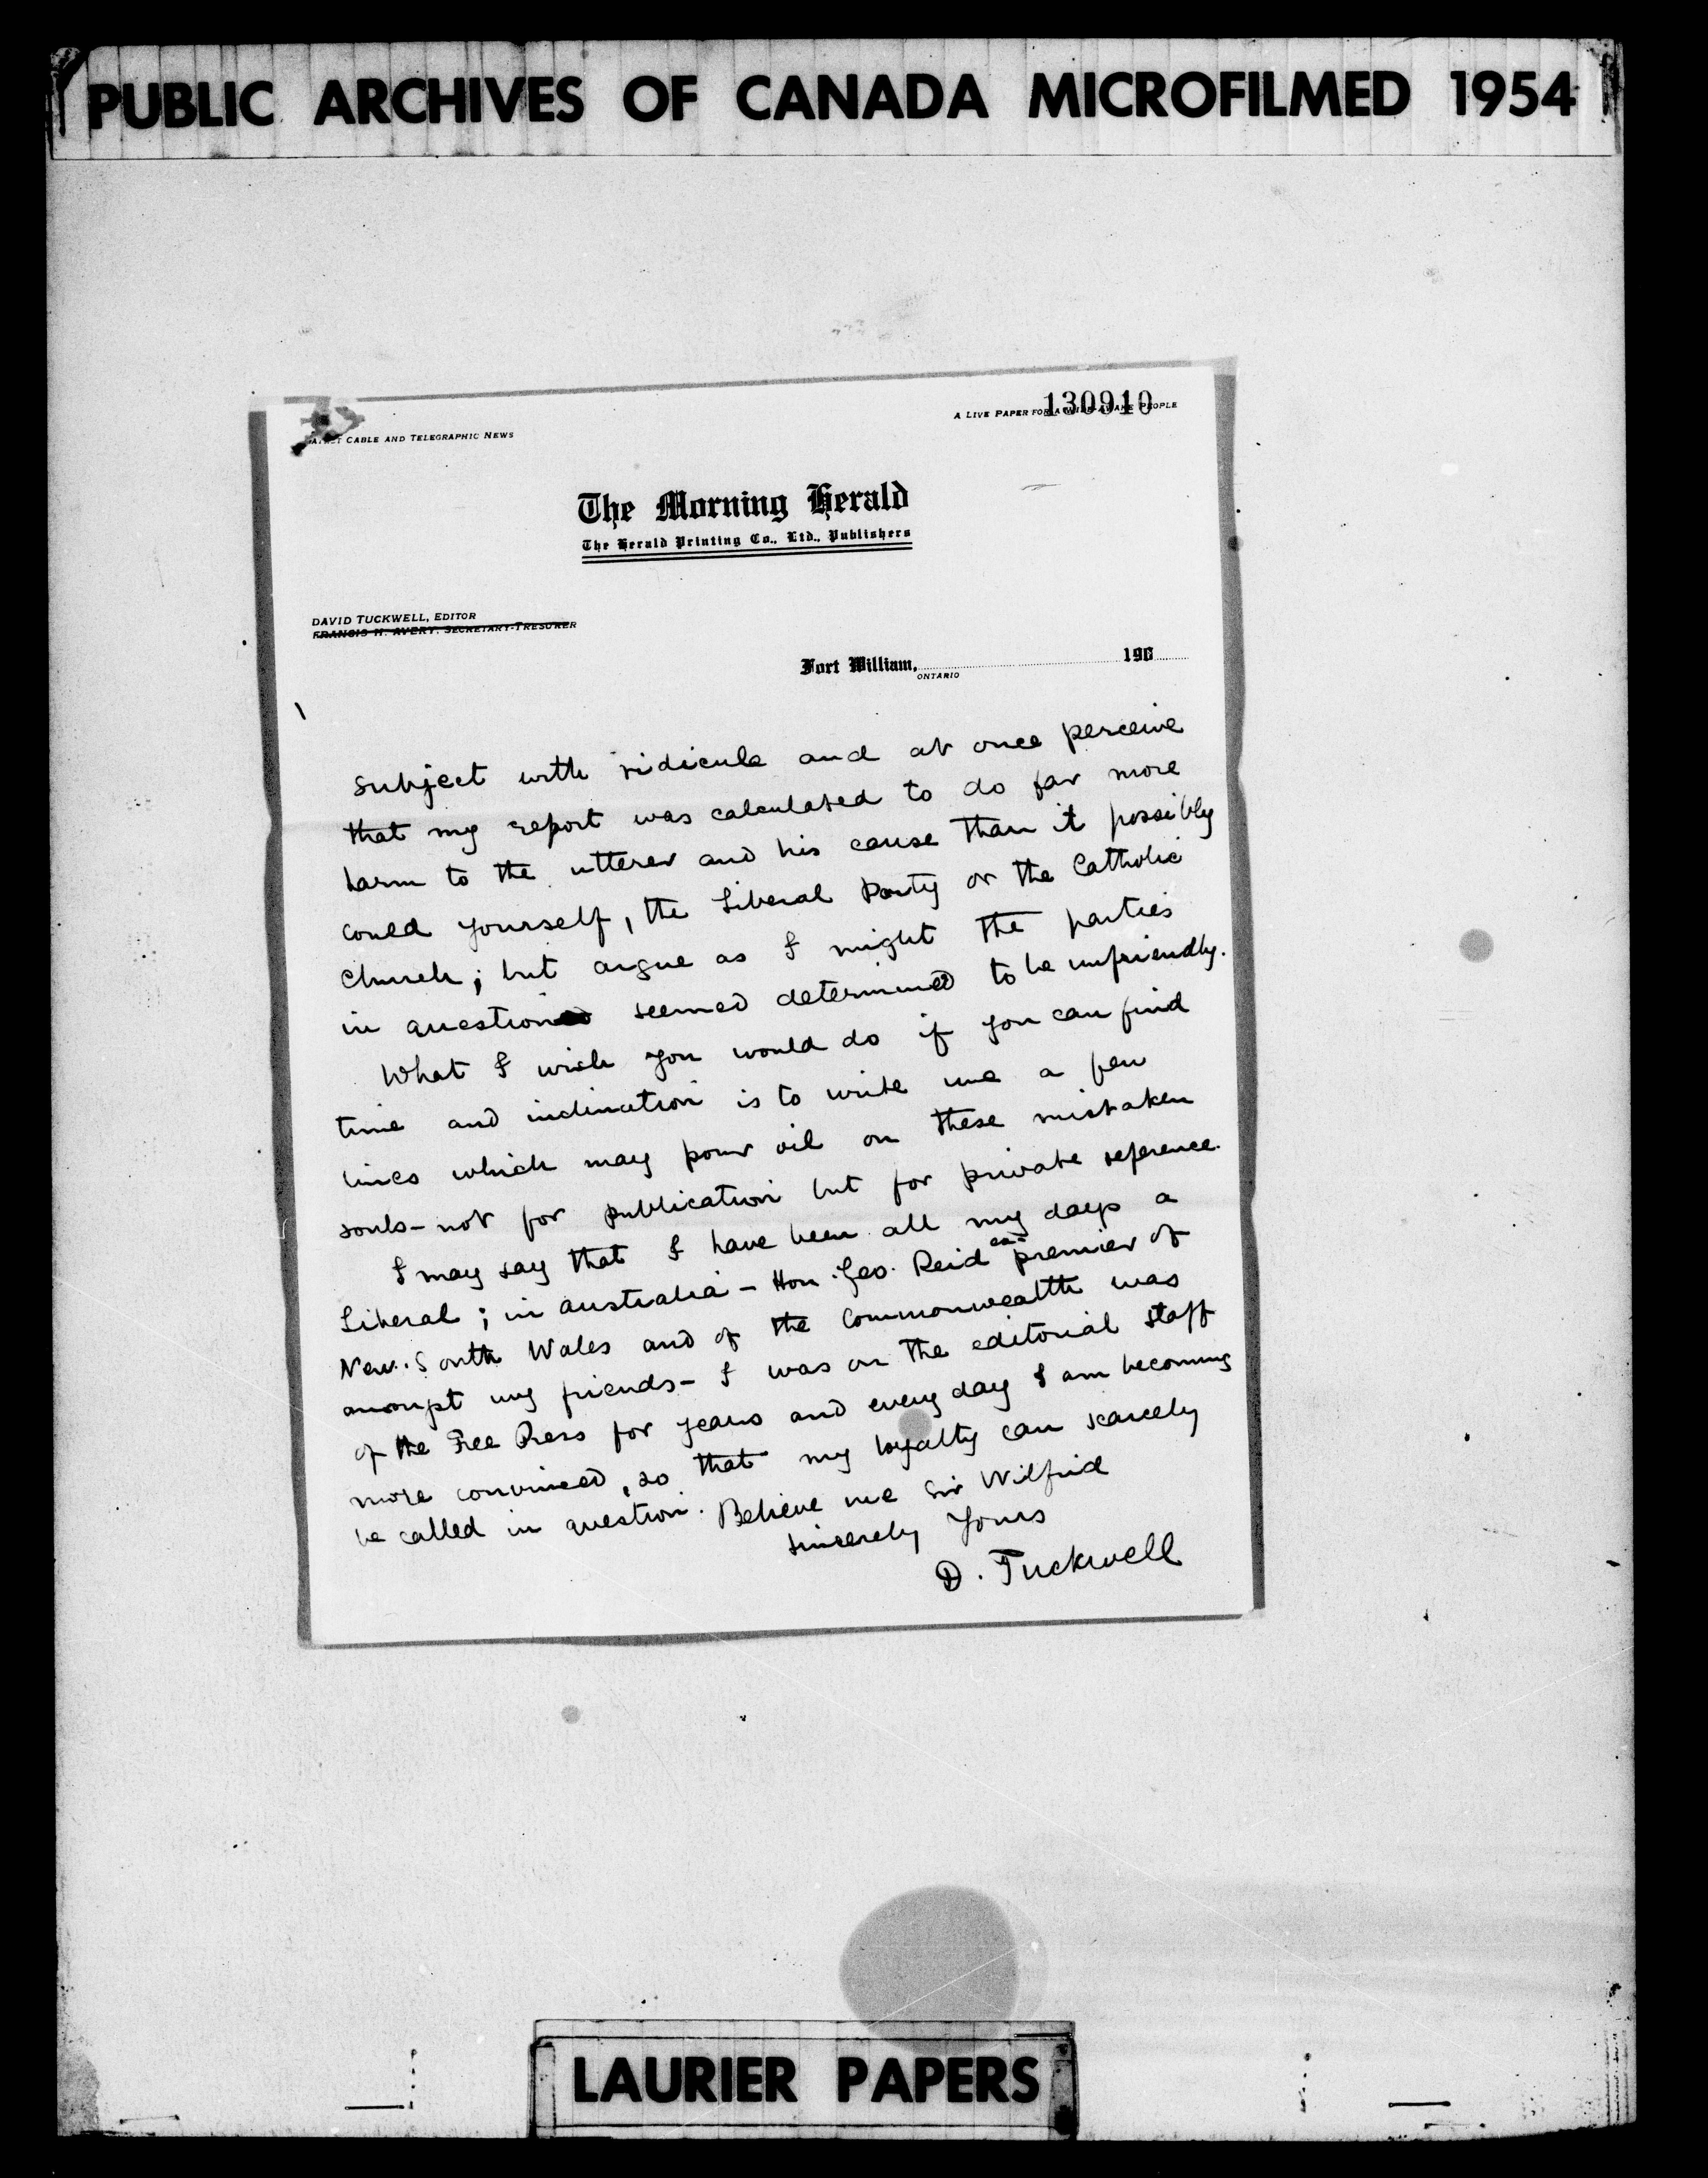 PUBLIC ARCHIVES OF CANADA MICROFILMED 1954
130910
A LIVE PAPER FOR A WIDE-AWAKE PEOPLE
CABLE AND TELEGRAPHIC NEWS
The Morning Herald
The Herald Printing Co., Ltd., Publishers
DAVID TUCKWELL, EDITOR
FRANCIS H. AVERY, SECRETARY-TRESURER
Fort William, 190
ONTARIO
subject with ridicule and at once perceive
that my report was calculated to do far more
harm to the utterer and his cause than it possibly
could yourself, the Liberal Party or the Catholic
Church; but argue as I might the parties
in question seemed determined to be unfriendly.
What I wish you would do if you can find
time and inclination is to write me a few
lines which may pour oil on these mistaken
souls - not for publication but for private reference.
I may say that I have been all my days a
Liberal; in Australia - Hon. Geo. Reid ex-premier of
New South Wales and of the Commonwealth was
amongst my friends - I was on the editorial staff
of the Free Press for years and every day I am becoming
more convinced, so that my loyalty can scarcely
be called in question. Believe me Sir Wilfrid
sincerely Yours
D. Tuckwell
LAURIER PAPERS